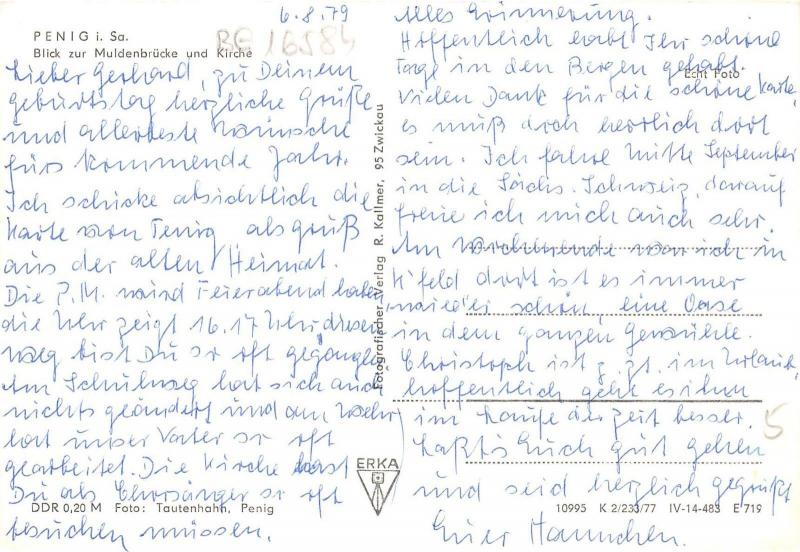 6.8.79
PENIG i. Sa.
Blick zur Muldenbrücke und Kirche
BE 16584
Lieber Gerhard, zu Deinem
Geburtstag herzliche Grüße
und allerbeste Wünsche
fürs kommende Jahr.
Ich schicke absichtlich die
Karte von Penig als Gruß
aus der alten Heimat.
Die P.M. wird Feierabend haben
die Uhr zeigt 16.17 Uhr, diesen
Weg bist Du so oft gegangen.
Am Schulweg hat sich auch
nichts geändert und am Wehr
hat unser Vater so oft
gearbeitet. Die Kirche hast
Du als Chorsänger so oft
besuchen müssen.
DDR 0,20 M Foto: Tautenhahn, Penig
Fotografischer Verlag R. Kallmer, 95 Zwickau
ERKA
Alles Erinnerung.
Hoffentlich habt Ihr schöne
Tage in den Bergen gehabt.
Echt Foto
Vielen Dank für die schöne Karte,
es muß doch herrlich dort
sein. Ich fahre Mitte September
in die Sächs. Schweiz, darauf
freue ich mich auch sehr.
Am Wochenende war ich in
K'feld dort ist es immer
wieder schön, eine Oase
in dem ganzen Gewühle.
Christoph ist z.Zt. im Urlaub,
hoffentlich geht es ihm
im Laufe der Zeit besser.
Laßt's Euch gut gehen
und seid herzlich gegrüßt
Eure Hannchen.
5
10995 K 2/233/77 IV-14-483 E 719